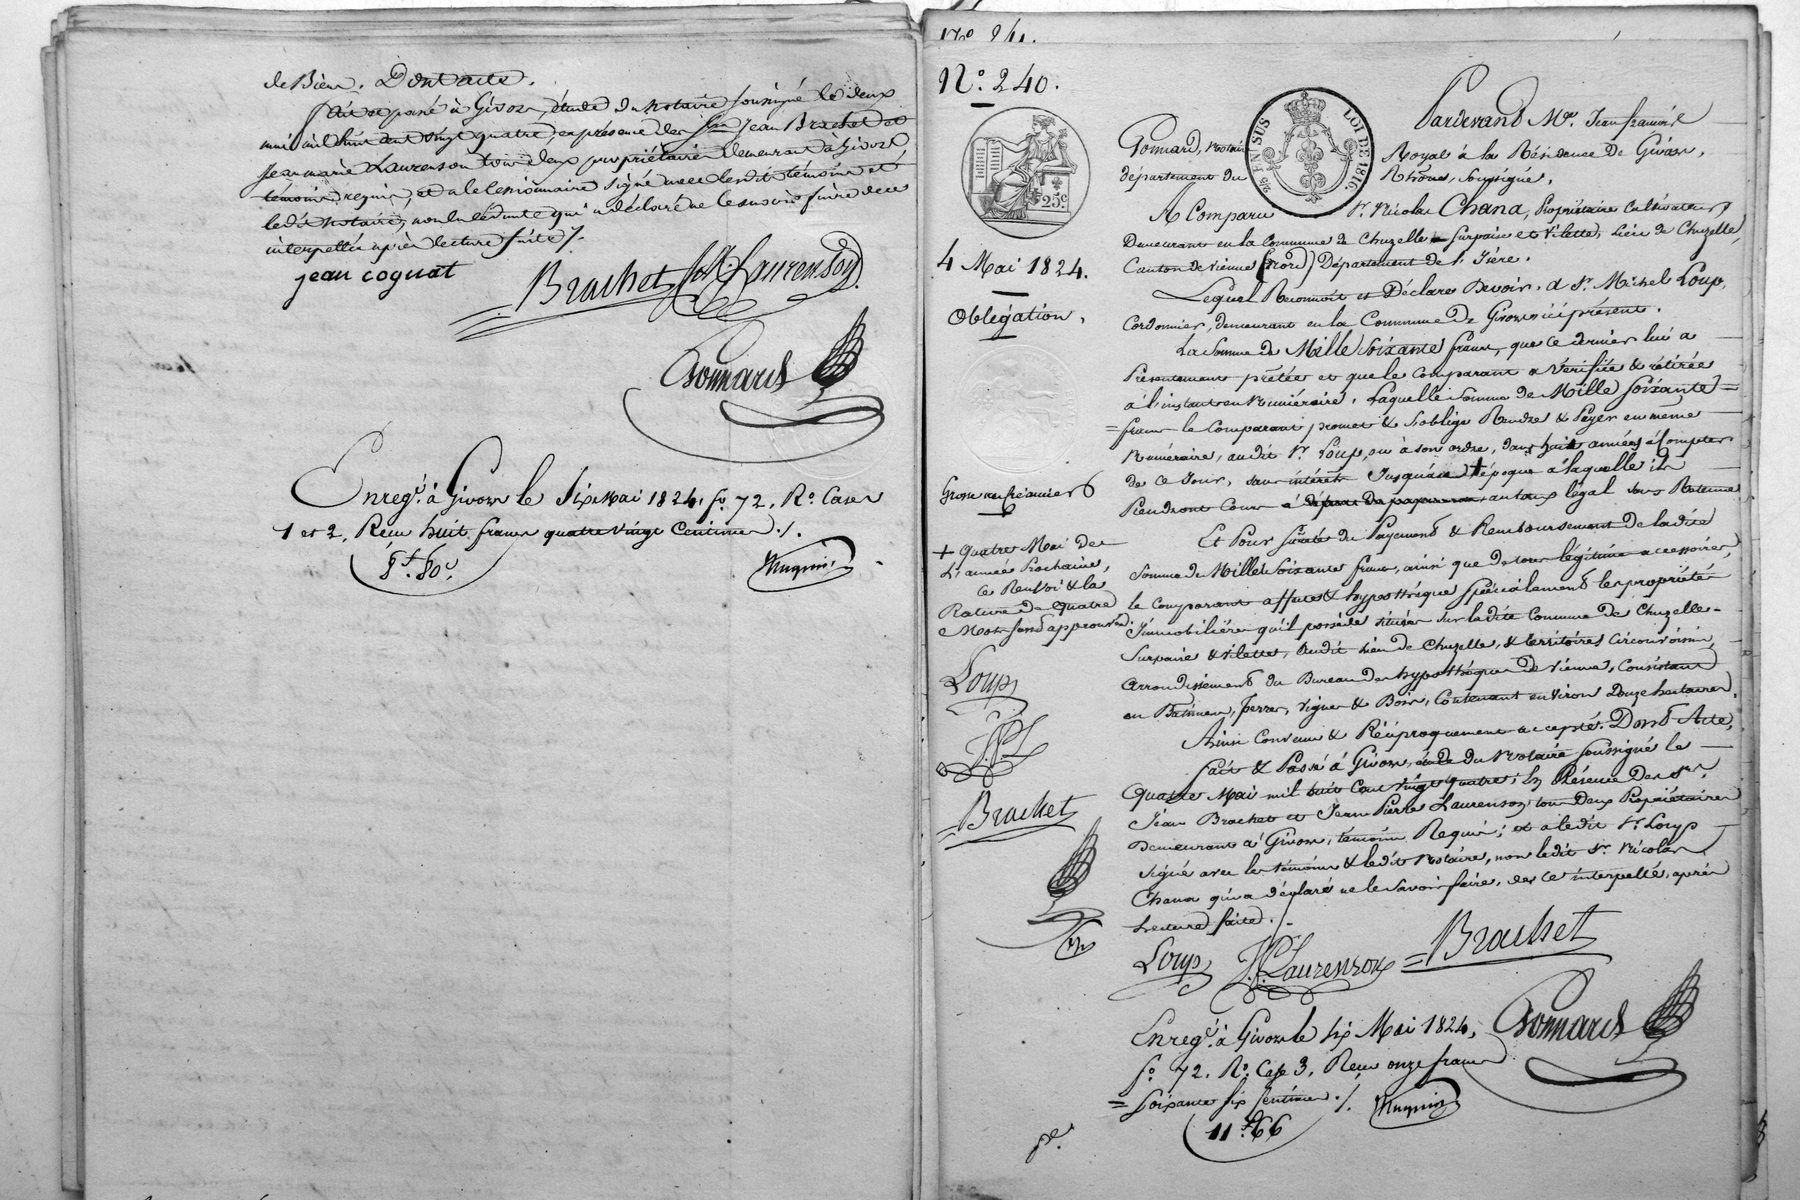 de Biens. Dont acte.
Fait et passé à Givors, étude du notaire soussigné le deux
mai mil huit cent vingt quatre, en présence des srs Jean Brachet et
Jean marie Laurenson tous deux propriétaires demeurant à Givors,
témoins requis, et a le cessionnaire signé avec lesdits témoins et
ledit notaire, non la cédante qui a déclaré ne le savoir faire de ce
interpellée après lecture faite /.
jean cognat
Brachet
Laurenson
Gonnard
Enregé. à Givors le Six Mai 1824. fo. 72. Ro. Cases
1 et 2, Reçu huit francs quatre vingt Centimes ./.
8f. 80c.
Mugnier
No. 241.
No. 240.
EN SUS
LOI DE 1816.
25c.
4 Mai 1824.
Obligation.
Grosse au créancier
+ Quatre Mai de
L'année Prochaine,
ce Renvoi & la
Rature de quatre
Mots sont approuvés.
Loup
JPL
Brachet
Pardevant Me. Jean françois
Gonnard, Notaire Royal à la Résidence de Givors,
département du Rhône, soussigné,
A Comparu Sr. Nicolas Chana, Propriétaire Cultivateur
Demeurant en la Commune de Chuzelle Surpaire et Vilette, Lieu de Chuzelle,
Canton de Vienne (Nord) Département de l'Isère.
Lequel Reconnoit et Déclare Devoir, à Sr. Michel Loup,
Cordonnier, demeurant en la Commune de Givors ici présent.
La Somme de Mille Soixante francs, que ce dernier lui a
Présentement prêtée et que le Comparant a Vérifiée & rétirée
à l'instant en Numéraire, Laquelle Somme de Mille Soixante
francs le Comparant promet & s'oblige Rendre & Payer en meme
Numéraire, audit Sr. Loup, ou à son ordre, dans huit années à Compter
de ce Jour, sans intérêts Jusqu'au + époque à laquelle ils
Prendront Cours au taux légal sans Retenue
Et Pour Sureté du Payement & Remboursement de ladite
Somme de Mille Soixante francs, ainsi que de tous légitimes accessoires,
le Comparant affecte & hypothéque spécialement les propriétés
Immobilières qu'il possède situées sur ladite Commune de Chuzelle-
Surpaire & Vilette, audit Lieu de Chuzelle, & territoires Circonvoisins,
Arrondissement du Bureau des hypothèques de Vienne, Consistant
en Batimens, Terres, Vignes & Bois, Contenant environ Douze hectares.
Ainsi Convenu & Réciproquement accepté. Dont Acte,
Fait & Passé à Givors, étude du Notaire soussigné le
Quatre Mai mil huit Cent Vingt quatre, En Présence des Srs.
Jean Brachet et Jean Pierre Laurenson tous Deux Propriétaires
Demeurant à Givors, témoins Requis; et a ledit Sr. Loup
Signé avec les témoins & ledit Notaire, non ledit Sr. Nicolas
Chana qui a déclaré ne le Savoir faire, de ce interpellé, après
Lecture faite.
Loup
JPLaurenson
Brachet
Gonnard
Enregé. à Givors le Six Mai 1824,
fo. 72. Ro. Case 3, Reçu onze francs
Soixante six Centimes ./.
Mugnier
11f. 66